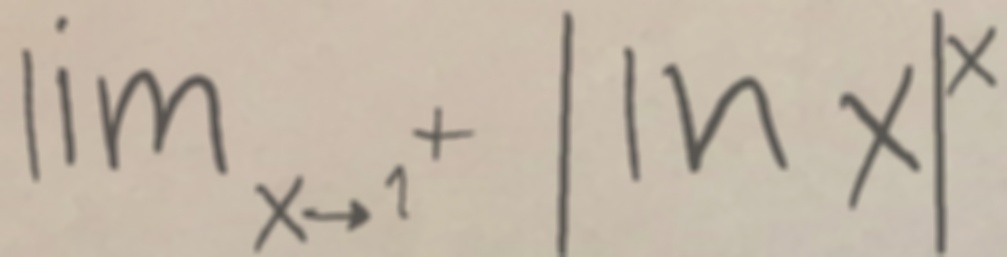 lim x→1⁺ |ln x|ˣ